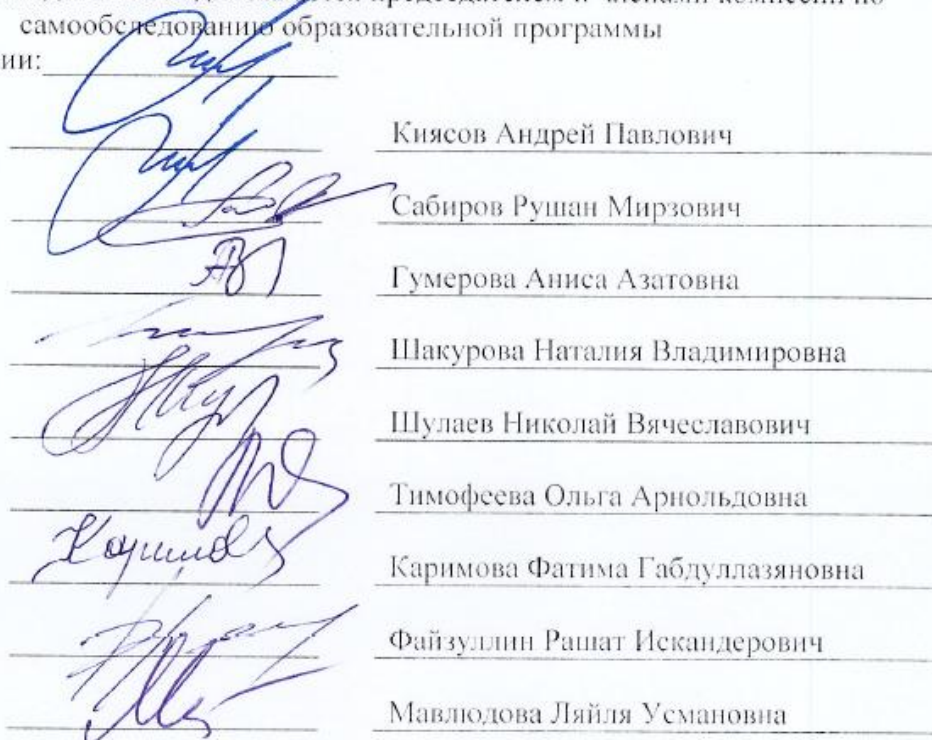 самообследованию образовательной программы
ии:
Киясов Андрей Павлович
Сабиров Рушан Мирзович
Гумерова Аниса Азатовна
Шакурова Наталия Владимировна
Шулаев Николай Вячеславович
Тимофеева Ольга Арнольдовна
Каримова Фатима Габдуллазяновна
Файзуллин Рашат Искандерович
Мавлюдова Ляйля Усмановна